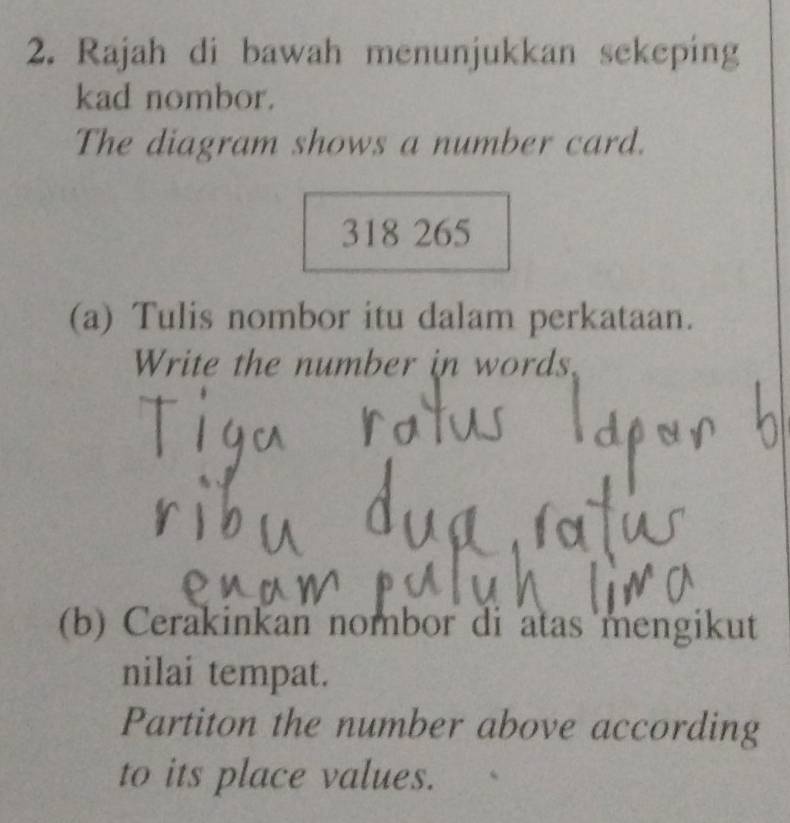 2. Rajah di bawah menunjukkan sekeping
kad nombor.
The diagram shows a number card.
318 265
(a) Tulis nombor itu dalam perkataan.
Write the number in words.
Tiga ratus lapan b
ribu dua ratus
enam puluh lima
(b) Cerakinkan nombor di atas mengikut
nilai tempat.
Partiton the number above according
to its place values.